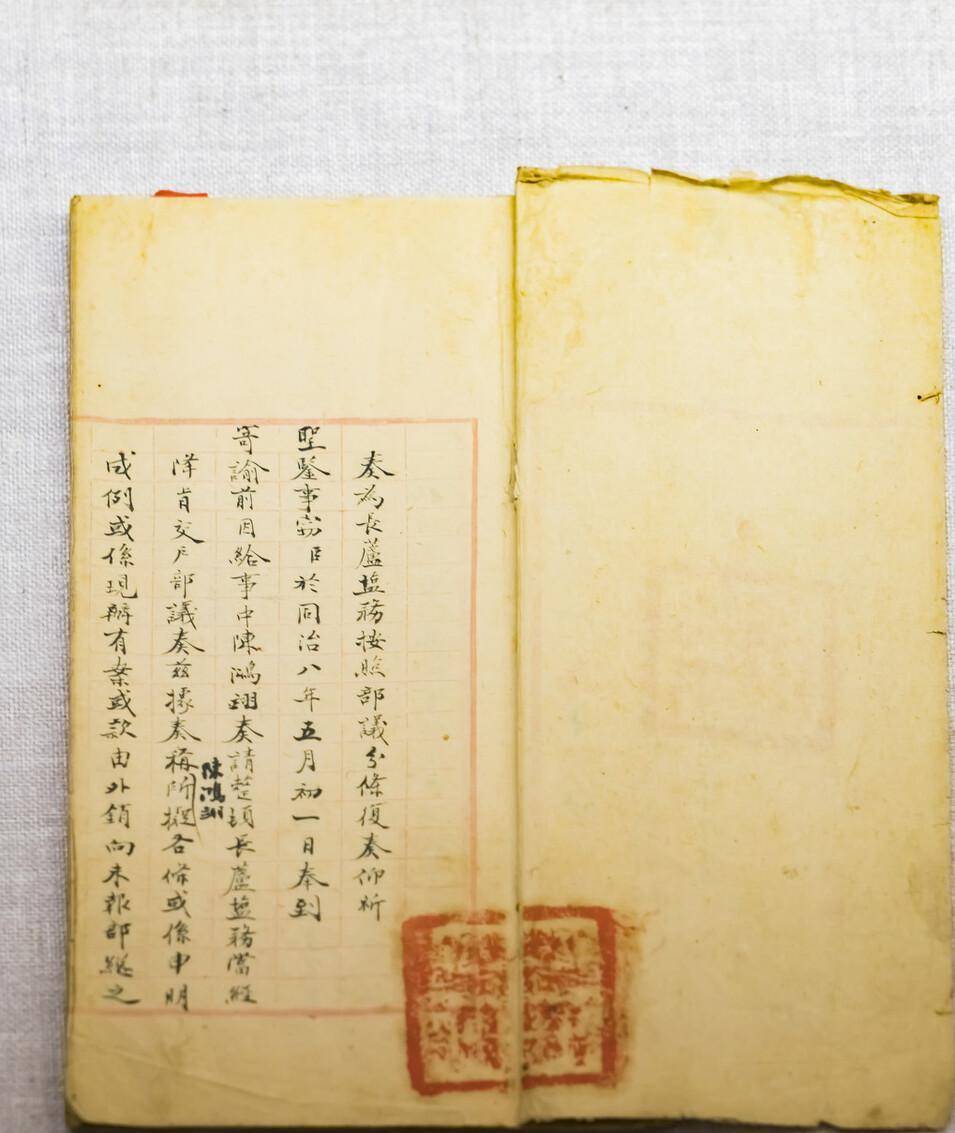 奏為長蘆塩務按照部議分條復奏仰祈
聖鑒事窃臣於同治八年五月初一日奉到
寄諭前因給事中陳鴻翊奏請整頓長蘆塩務當經
降旨交户部議奏兹據奏稱所擬各條或係申明
陳鴻翊
成例或係現辦有案或款由外銷向未報部總之